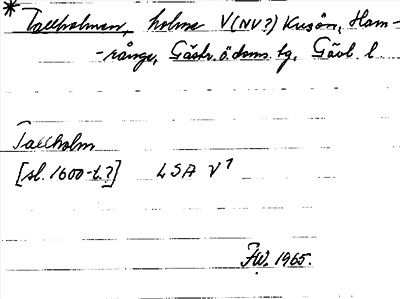 * Tallholmen, holme V(NV?) Kusön, Ham-
-rånge, Gästr. ö. doms. tg, Gävl. l
Tallholm
[sl. 1600-t.?] LSA V¹
FW. 1965.